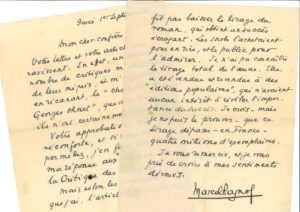 1er Sept
Mon cher confrère
Votre lettre et votre articl
ravissent. En effet, un
nombre de critiques m
de leur mépris, et m
en ricanant, le "
Georges Ohnet", que
ils n'ont certaineme
Votre approbatio
réconforte, et si
j'en f
ma réponse aux
la Critique des
Mais selon les
que j'ai, l'articl
fit pas baisser le tirage du
roman, qui obtint un succès
Les snobs l'achetaient
pour en rire, et le public pour
l'admirer. Je n'ai pu connaître
le tirage total de l'œuvre. Elle
a été vendue et revendue à des
"éditions populaires", qui n'avaient
aucun intérêt à révéler l'impor-
tance du succès. Je crois, mais
je ne puis le prouver - que ce
tirage dépassa - en France -
quatre millions d'exemplaires.
Je vous remercie, et je vous
prie de croire à mes sentiments
dévoués.
Marcel Pagnol